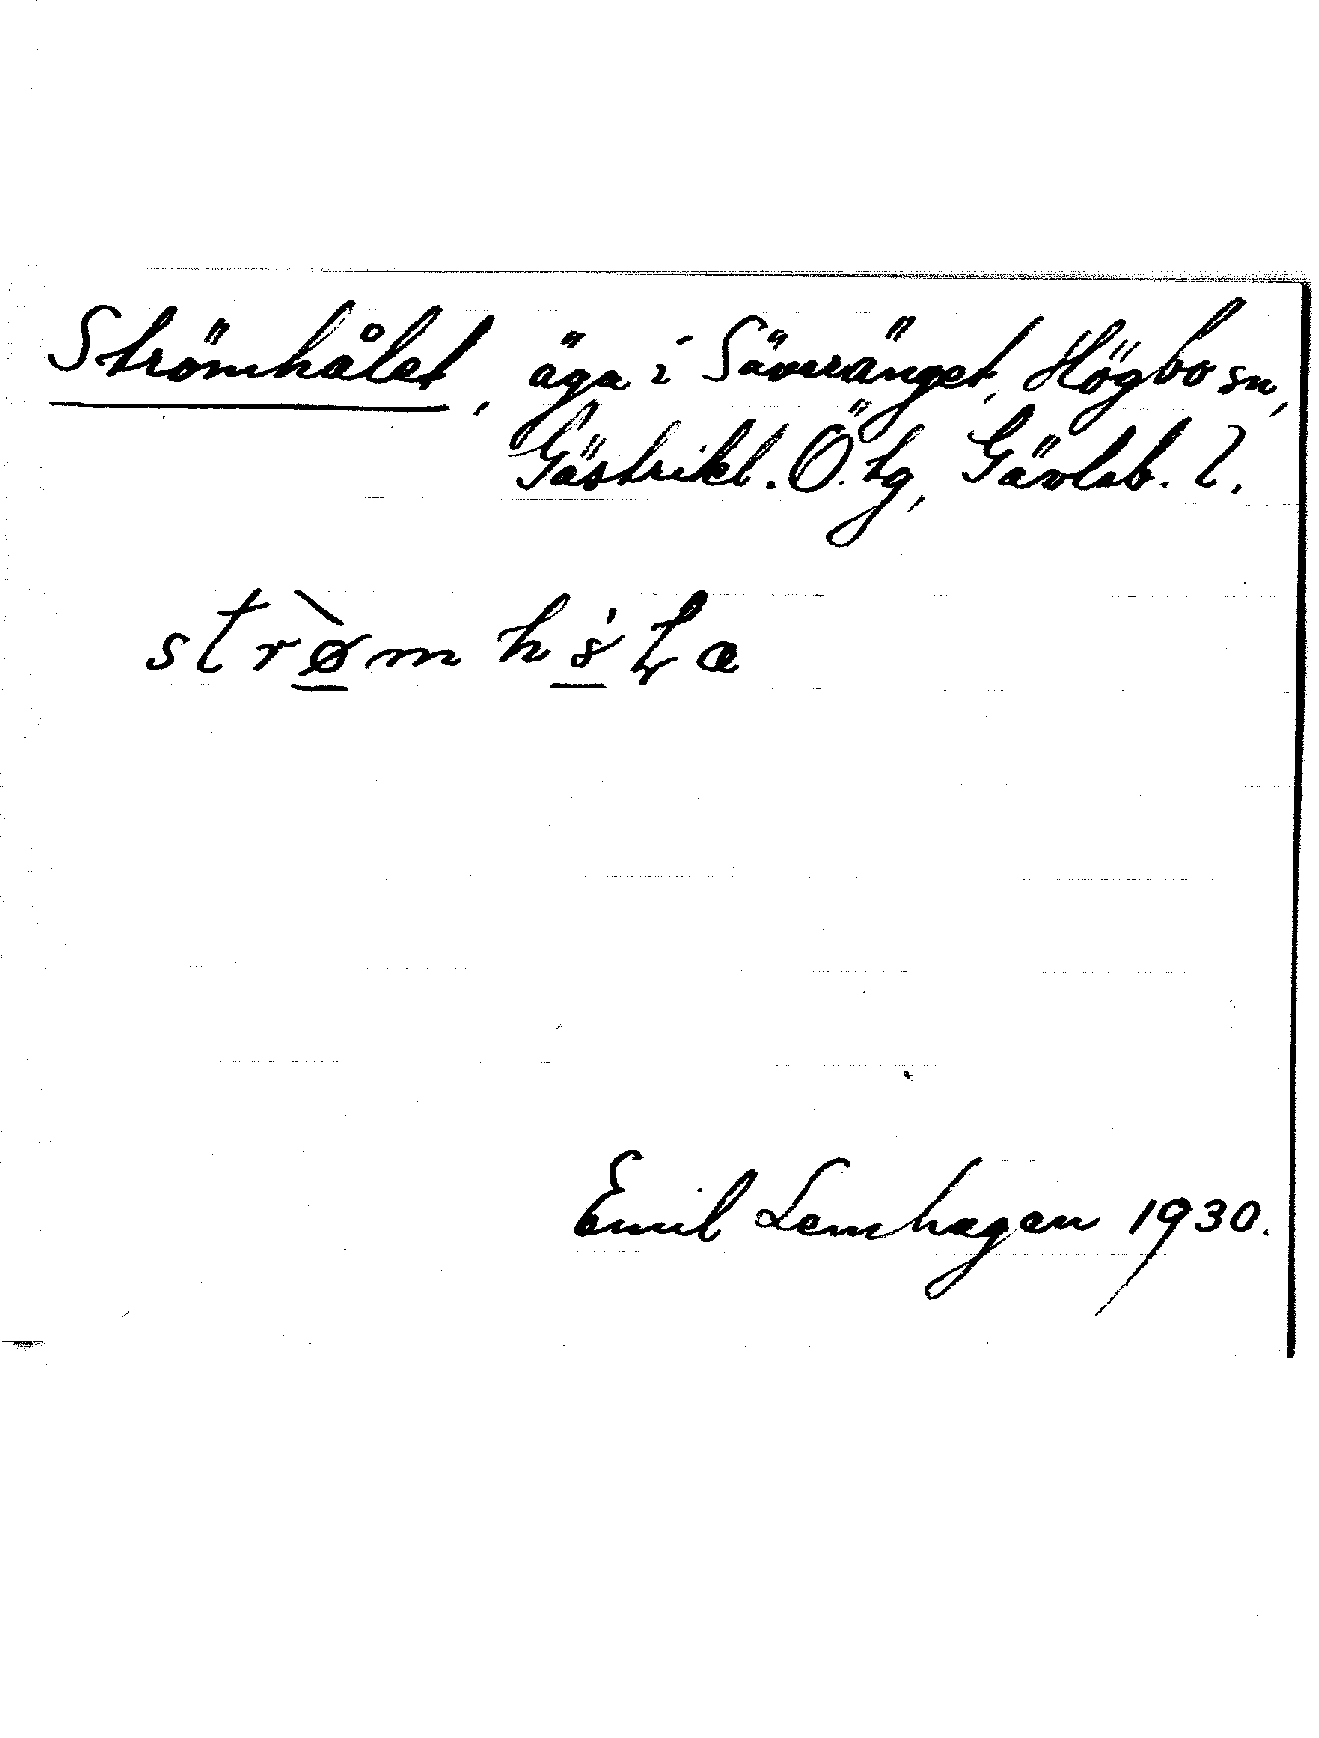 Strömhålet, äga i Säveränget, Högbo sn,
Gästrikl. Ö. tg, Gävleb. l.
Emil Lemhagen 1930.